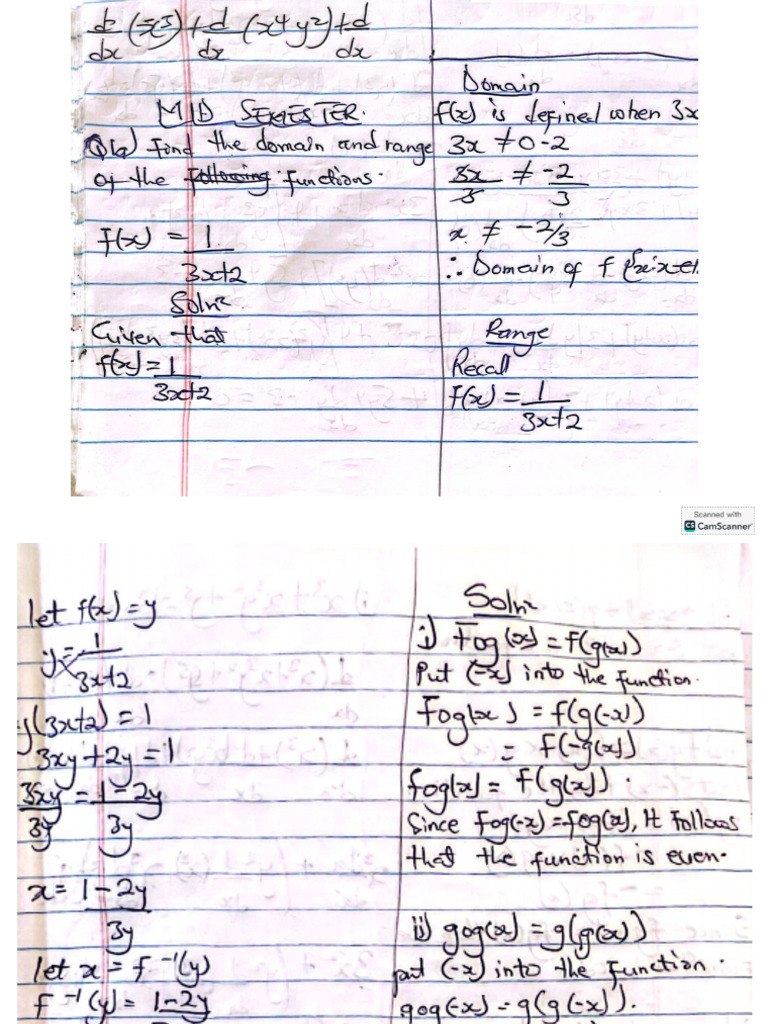 d/dx (x³) + d/dx (x⁴y²) + d/dx
MID SEMESTER.
Q1a) Find the domain and range
of the following functions.
f(x) = 1/3x+2
Soln
Given that
f(x) = 1/3x+2
Domain
f(x) is defined when 3x
3x ≠ 0-2
3x/3 ≠ -2/3
x ≠ -2/3
∴ Domain of f {x: x∈
Range
Recall
f(x) = 1/3x+2
Scanned with
CS CamScanner
let f(x) = y
y = 1/3x+2
y(3x+2) = 1
3xy + 2y = 1
3xy/3y = 1-2y/3y
x = 1-2y/3y
let x = f⁻¹(y)
f⁻¹(y) = 1-2y
Soln
i) Fog(x) = f(g(x))
Put (-x) into the function.
Fog(-x) = f(g(-x))
= f(-g(x))
fog(x) = f(g(x)).
Since Fog(-x) = fog(x), It follows
that the function is even.
ii) gog(x) = g(g(x))
put (-x) into the function.
gog(-x) = g(g(-x)).